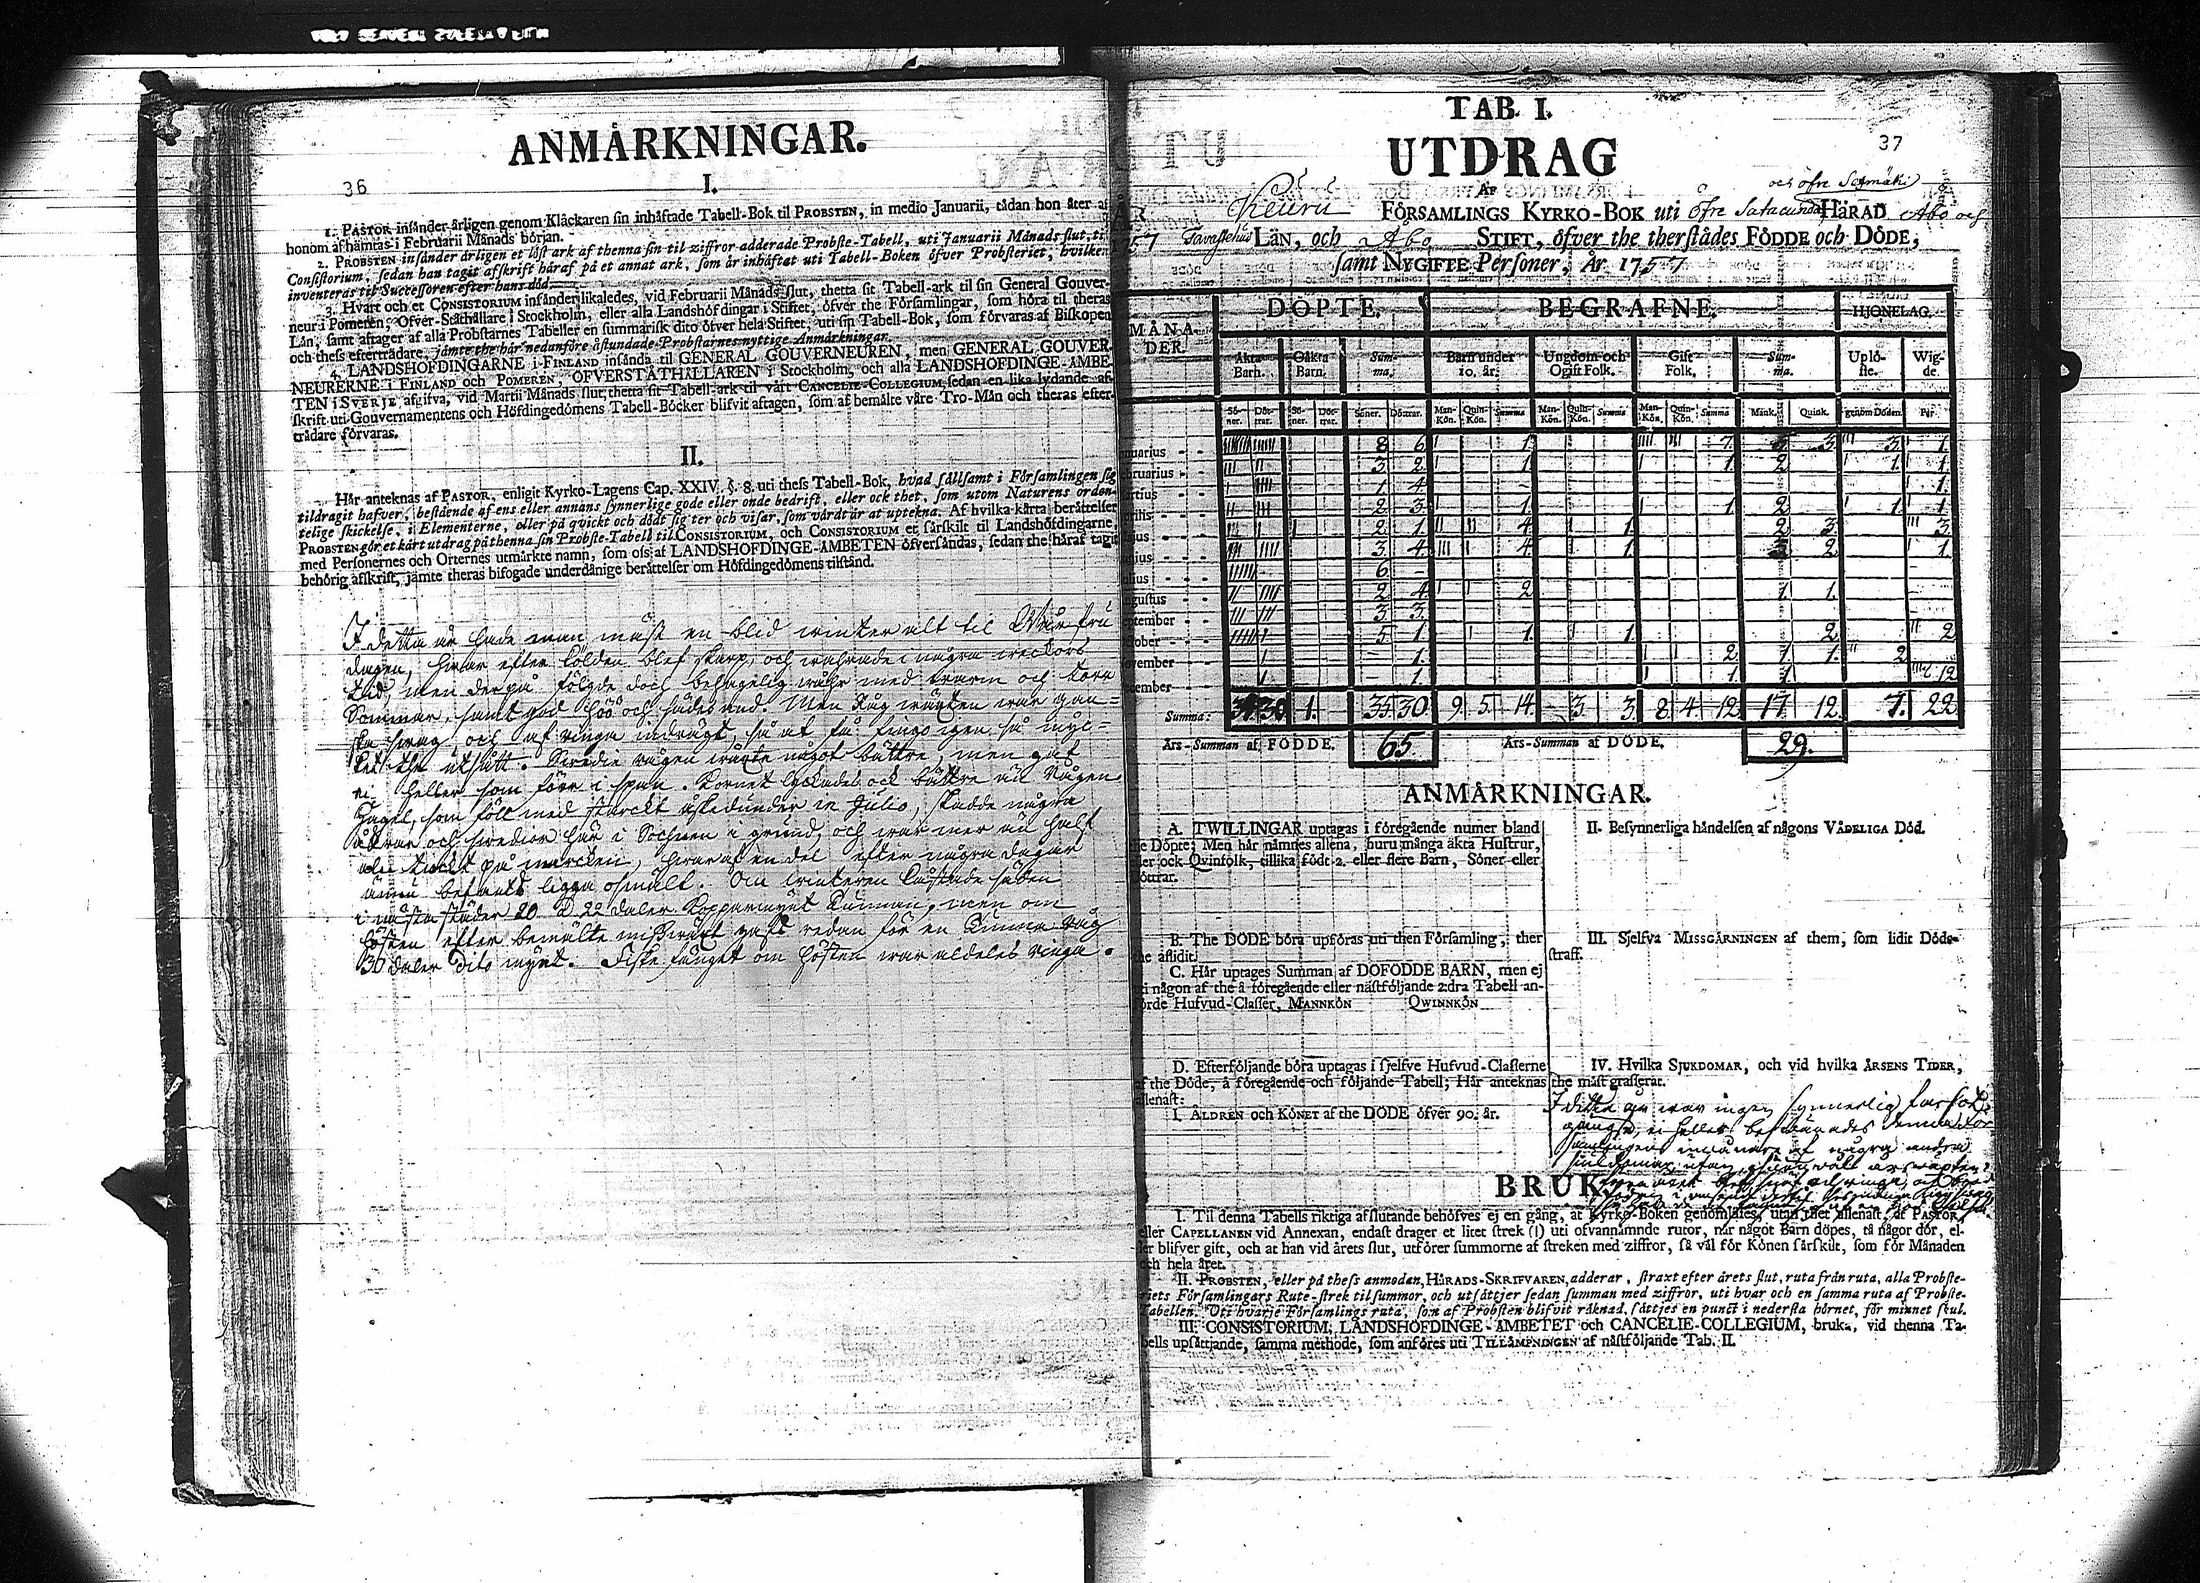 36
ANMÄRKNINGAR.
I.
1. PASTOR insänder årligen genom Kläckaren sin inhäftade Tabell-Bok til PROBSTEN, in medio Januarii, tädan hon åter af
honom afhämtas i Februarii Månads början.
2. PROBSTEN insänder årligen et löst ark af thenna sin til ziffror adderade Probste-Tabell, uti Januarii Månads slut, til
Consistorium, sedan han tagit afskrift häraf på et annat ark, som är inhäftat uti Tabell-Boken öfver Probsteriet, hvilken
inventeras til Successoren efter hans död.
3. Hvart och et CONSISTORIUM insänder likaledes, vid Februarii Månads slut, thetta sit Tabell-ark til sin General Gouver-
neur i Pomeren, Öfver-Ståthållare i Stockholm, eller alla Landshöfdingar i Stiftet, öfver the Församlingar, som höra til theras
Län, samt aftager af alla Probstarnes Tabeller en summarisk dito öfver hela Stiftet, uti sin Tabell-Bok, som förvaras af Biskopen
och thess efterträdare, jämte the här nedanföre åstundade Probstarnes nyttige Anmärkningar.
4. LANDSHÖFDINGARNE i FINLAND insända til GENERAL GOUVERNEUREN, men GENERAL GOUVER-
NEURERNE i FINLAND och POMEREN, ÖFVERSTÅTHÅLLAREN i Stockholm, och alla LANDSHÖFDINGE-ÄMBE-
TEN i SVERJE afgifva, vid Martii Månads slut, thetta sit Tabell-ark til vårt CANCELIE-COLLEGIUM, sedan en lika lydande af-
skrift uti Gouvernamentens och Höfdingedömens Tabell-Böcker blifvit aftagen, som af bemälte våre Tro-Män och theras efter-
trädare förvaras.
II.
Här anteknas af PASTOR, enligit Kyrko-Lagens Cap. XXIV. §. 8. uti thess Tabell-Bok, hvad sällsamt i Församlingen sig
tildragit hafver, bestående af ens eller annans synnerlige gode eller onde bedrift, eller ock thet, som utom Naturens orden-
telige skickelse, i Elementerne, eller på qvickt och dödt sig ter och visar, som värdt är at uptekna. Af hvilka kårta berättelser
PROBSTEN gör et kårt utdrag på thenna sin Probste-Tabell til CONSISTORIUM, och CONSISTORIUM et särskilt til Landshöfdingarne,
med Personernes och Orternes utmärkte namn, som oss af LANDSHÖFDINGE-ÄMBETEN öfversändas, sedan the häraf tagit
behörig afskrift, jämte theras bifogade underdånige berättelser om Höfdingedömens tilstånd.
I detta år hade man mäst en blid winter alt til Wår fru
dagen, hwarefter kölden blef skarp, och wahrade i några weckors
tid, men derpå fölgde doch behagelig wåhr med warm och torr
Sommar, samt god höö och hades and. Men Råg wäxten war gan=
ska swag och af ringa indrägt, så at få fingo igen så myc=
ket the utsått. Swedie rågen wäxte något bättre, men gaf
ei heller som förr i span. Kornet lyckades ock bättre än Rågen
Hagel, som föll med starckt åskedunder in Julio, skadde några
åkrar och swedior här i Sochnen i grund, och war mer än half
aln tiockt på marcken, hwaraf en del efter några dagar
ännu befants ligga osmält. Om winteren kostade säden
i nästa städer 20 à 22 daler Kopparmynt Tunnan, men om
hösten efter bemälte misswäxt gafs redan för en Tunna råg
30 daler dito mynt. Fiske fånget om hösten war aldeles ringa.
37
TAB. I.
UTDRAG
AF
och öfre Sexmäki
Keuru FÖRSAMLINGS KYRKO-BOK uti öfre Satacunda HÄRAD Åbo och
Tavastehus LÄN, och Åbo STIFT, öfver the therstädes FÖDDE och DÖDE,
samt NYGIFTE Personer, År 1757
MÅNA-DER. DÖPTE. BEGRAFNE. HJONELAG.
Äkta Barn. Oäkta Barn. Summa. Barn under 10. år. Ungdom och Ogift Folk. Gift Folk. Summa. Uplöste. Wigde.
Söner. Döttrar. Söner. Döttrar. Söner. Döttrar. Man-Kön. Quin-Kön. Summa Man-Kön. Quin-Kön. Summa Man-Kön. Quin-Kön. Summa Mank. Quink. genom Döden. Par.
nuarius - - 8 6 1. 7. 5 3 3. 1.
bruarius - - 3 2 1 1. 2 1. 1.
artius 1 4 1.
prilis 2 3 1 1 2 1. 1
ajus 2 1 4 1. 2 3 3.
unius 3 4 4 1 3 2 1.
ulius 6 -
ugustus 2 4 2 1 1.
eptember 3 3.
ctober 5 1. 1. 1. 2. 2
ovember - 1. 2 1 1. 2
cember - 1. 1 1 12
Summa: 30 1. 35 30. 9. 5. 14 3. 3. 8. 4. 12. 17 12. 7. 22
Års-Summan af FÖDDE. 65. Års-Summan af DÖDE. 29.
ANMÄRKNINGAR.
A. TWILLINGAR uptagas i föregående numer bland
e Döpte; Men här nämnes allena, huru många äkta Hustrur,
ler ock Qvinfolk, tillika födt 2. eller flere Barn, Söner eller
öttrar.
B. The DÖDE böra upföras uti then Församling, ther
he aflidit.
C. Här uptages Summan af DÖFÖDDE BARN, men ej
ti någon af the å föregående eller nästföljande 2:dra Tabell an-
förde Hufvud-Classer, MANNKÖN QWINNKÖN
D. Efterföljande böra uptagas i sjelfve Hufvud-Classerne
f the Döde, å föregående och följande Tabell; Här anteknas
llenast:
I. ÅLDREN och KÖNET af the DÖDE öfver 90. år.
II. Besynnerliga händelsen af någons VÅDELIGA Död.
III. Sjelfva MISSGÄRNINGEN af them, som lidit Döds-
straff.
IV. Hvilka SJUKDOMAR, och vid hvilka ÅRSENS TIDER,
the mäst grasserat.
I detta år war ingen synnerlig farsot
gängse, ei heller beswärades denna För
samlingens inwånare af några andra
BRUK.
I. Til denna Tabells riktiga afslutande behöfves ej en gång, at Kyrko-Boken genomläses, utan thet allenast, at PASTOR,
eller CAPELLANEN vid Annexan, endast drager et litet strek (|) uti ofvannämnde rutor, när något Barn döpes, tå någor dör, el-
er blifver gift, och at han vid årets slut, utförer summorne af streken med ziffror, så väl för Könen särskilt, som för Månaden
ch hela året.
II. PROBSTEN, eller på thess anmodan, HÄRADS-SKRIFVAREN, adderar, straxt efter årets slut, ruta från ruta, alla Probste-
riets Församlingars Rute-strek til summor, och utsättjer sedan summan med ziffror, uti hvar och en samma ruta af Probste-
Tabellen. Uti hvarje Församlings ruta, som af Probsten blifvit räknad, sättjes en punct i nedersta hörnet, för minnet skul.
III. CONSISTORIUM, LANDSHÖFDINGE-ÄMBETET och CANCELIE-COLLEGIUM, bruka, vid thenna Ta-
bells upsättjande, samma methode, som anföres uti TILLÄMPNINGEN af nästföljande Tab. II.